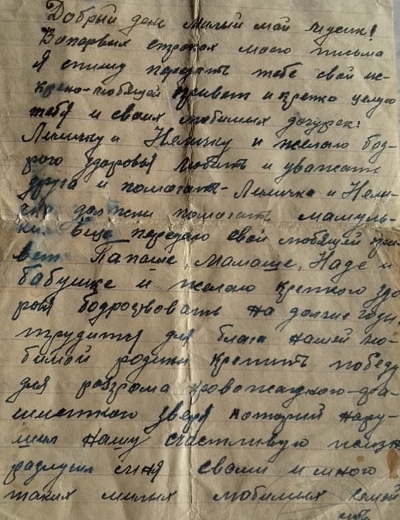 Добрый день милый мой Мусик!
Вопервых строках моего письма
Я спешу передать тебе свой ис-
крено-любящей привет и крепко целую
тебя и своих любимых дочурок:
Лиличку и Неличку и желаю бод-
рого здоровья любить и уважать
друга и помогать Лиличка и Нели-
должны помогать мамуль-
ки. Еще передаю свой любящей при-
вет Папаше, Мамаше, Наде и
бабушке и желаю крепкого здо
ровья бодросвовать на долгие годы
трудится для блага нашей лю-
бимой родины крепить победу
для разгрома кровожадного-фа-
шисткого зверя который нару-
шил нашу счастливую жизнь
разлучил меня с вами и много
таких милых любимых семей